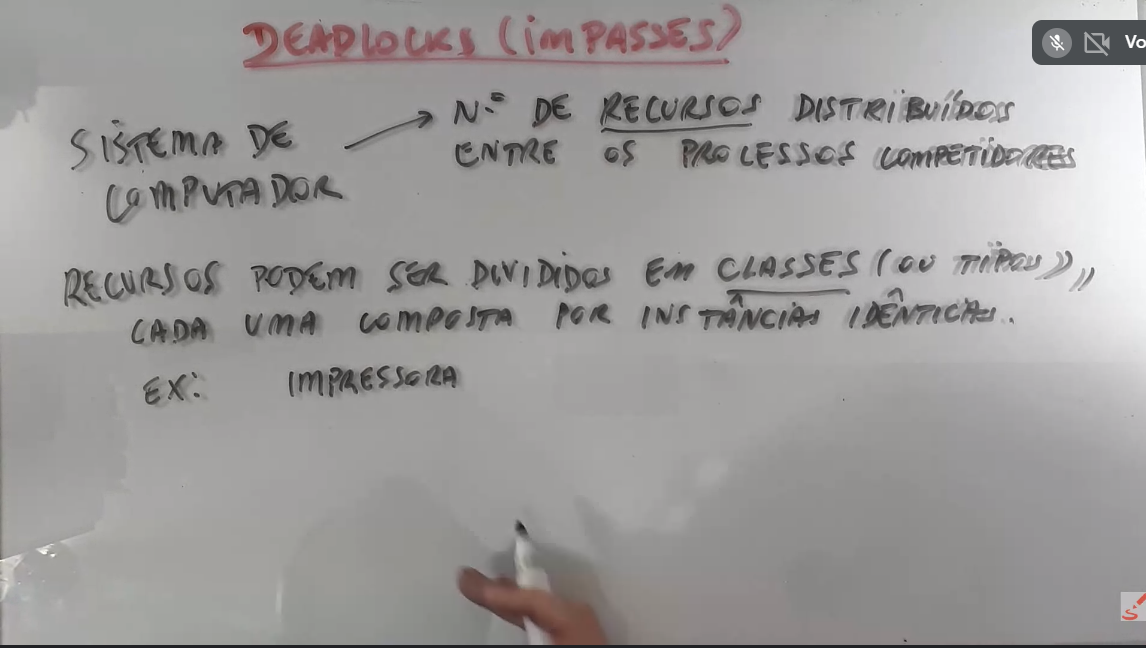 DEADLOCKS (IMPASSES)
SISTEMA DE COMPUTADOR → N.º DE RECURSOS DISTRIBUÍDOS
ENTRE OS PROCESSOS COMPETIDORES
RECURSOS PODEM SER DIVIDIDOS EM CLASSES (OU TIPOS),
CADA UMA COMPOSTA POR INSTÂNCIAS IDÊNTICAS.
EX: IMPRESSORA
Vo